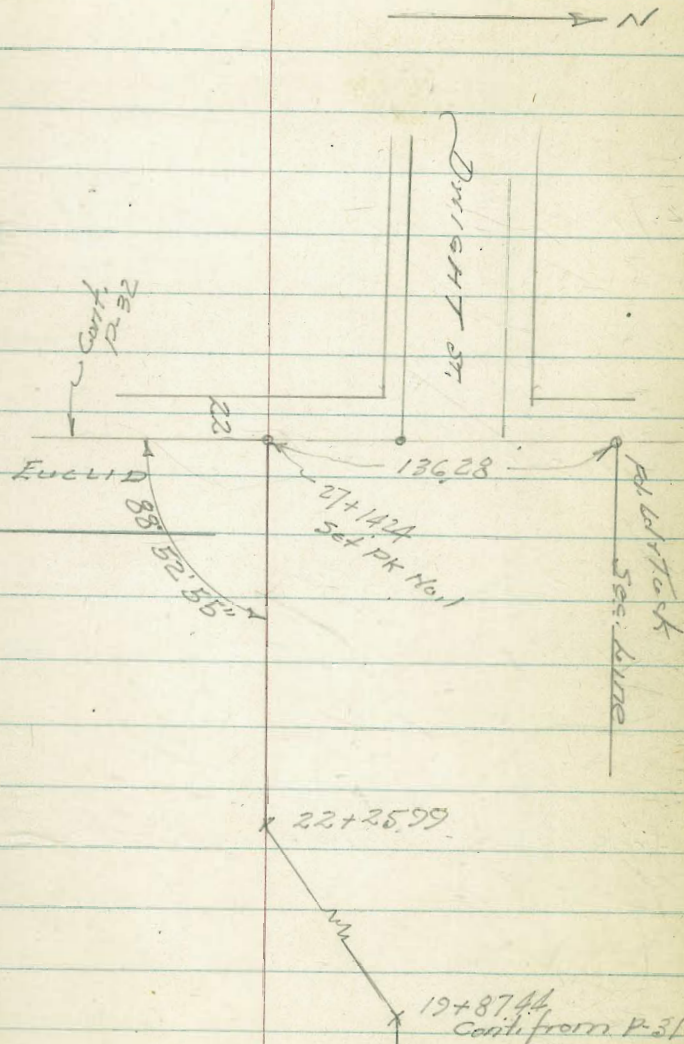 N
DWIGHT ST.
Cont.
P-32
22
EUCLID
136.28
27+14.24
Set PK Nail
88° 52' 55"
Fd. Ld & Tack
Sec. Line
22+25.99
19+87.44
Cont. from P-31